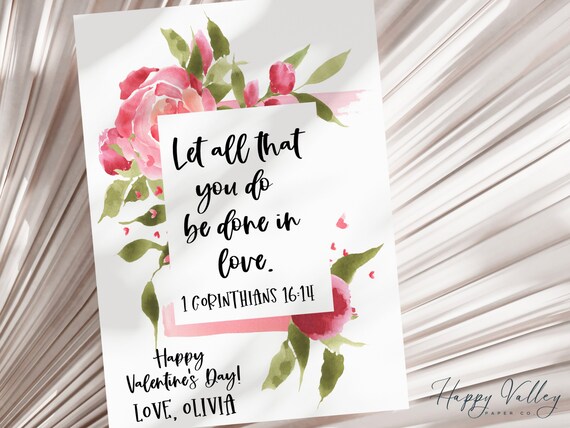 Let all that
you do
be done in
love.
1 CORINTHIANS 16:14
Happy
Valentine's Day!
LOVE, OLIVIA
Happy Valley
PAPER CO.